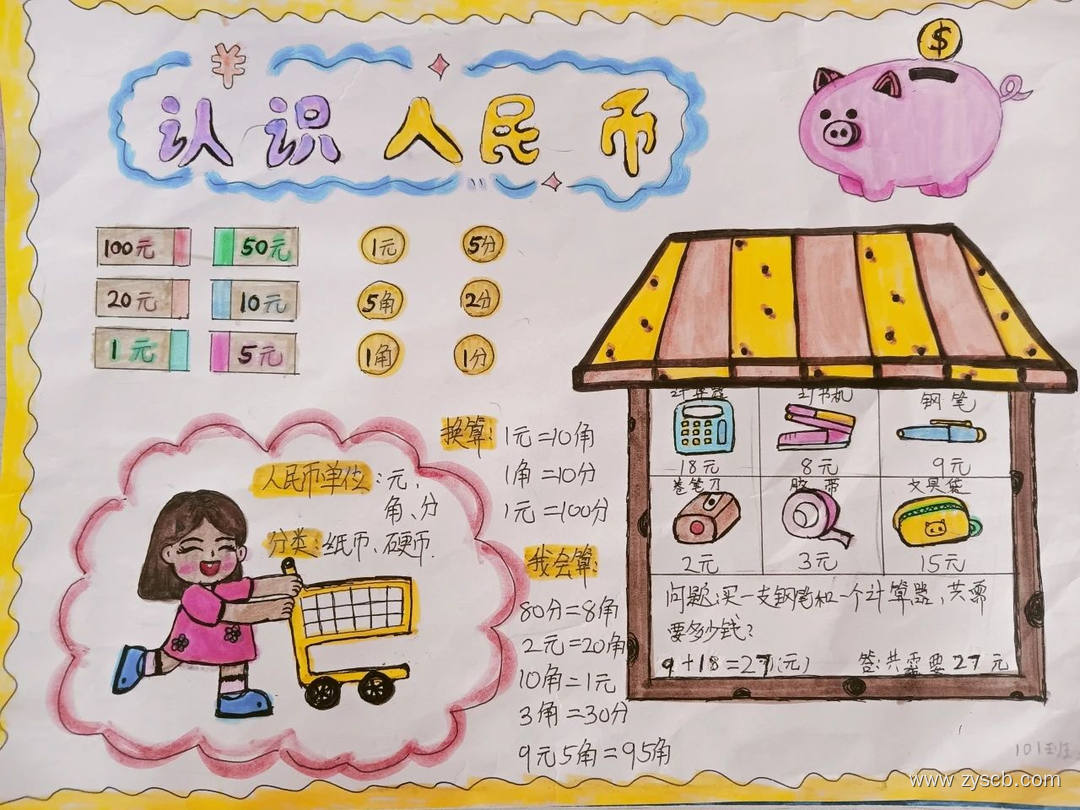 认识人民币
$
100元 50元 1元 5分
20元 10元 5角 2分
1元 5元 1角 1分
换算: 1元=10角
1角=10分
1元=100分
人民币单位:元、
角、分
分类:纸币、硬币.
我会算:
80分=8角
2元=20角
10角=1元
3角=30分
9元5角=95角
计算器 订书机 钢笔
18元 8元 9元
卷笔刀 胶带 文具袋
2元 3元 15元
问题:买一支钢笔和一个计算器,共需
要多少钱?
9+18=27(元) 答:共需要27元
101班
www.zyscb.com